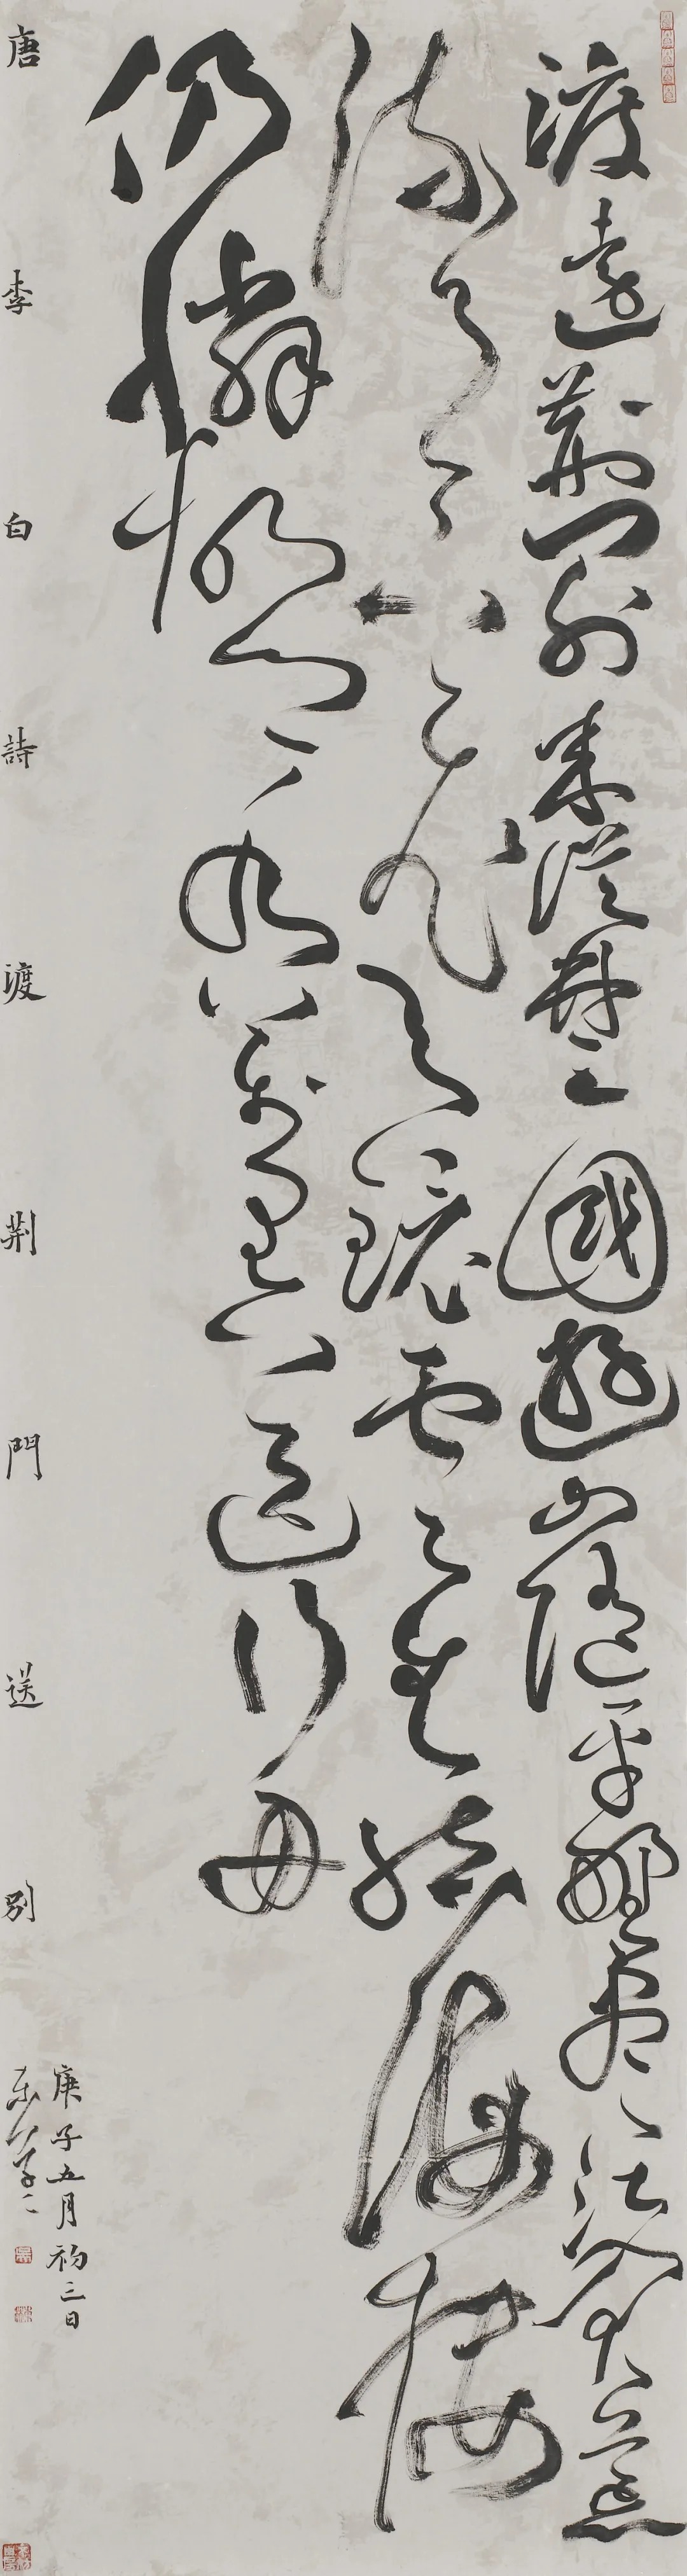 渡遠荆門外來從楚國遊山隨平野盡江入大荒
流月下飛天鏡雲生結海樓
仍憐故鄉水萬里送行舟
唐李白詩渡荆門送別
庚子五月初三日